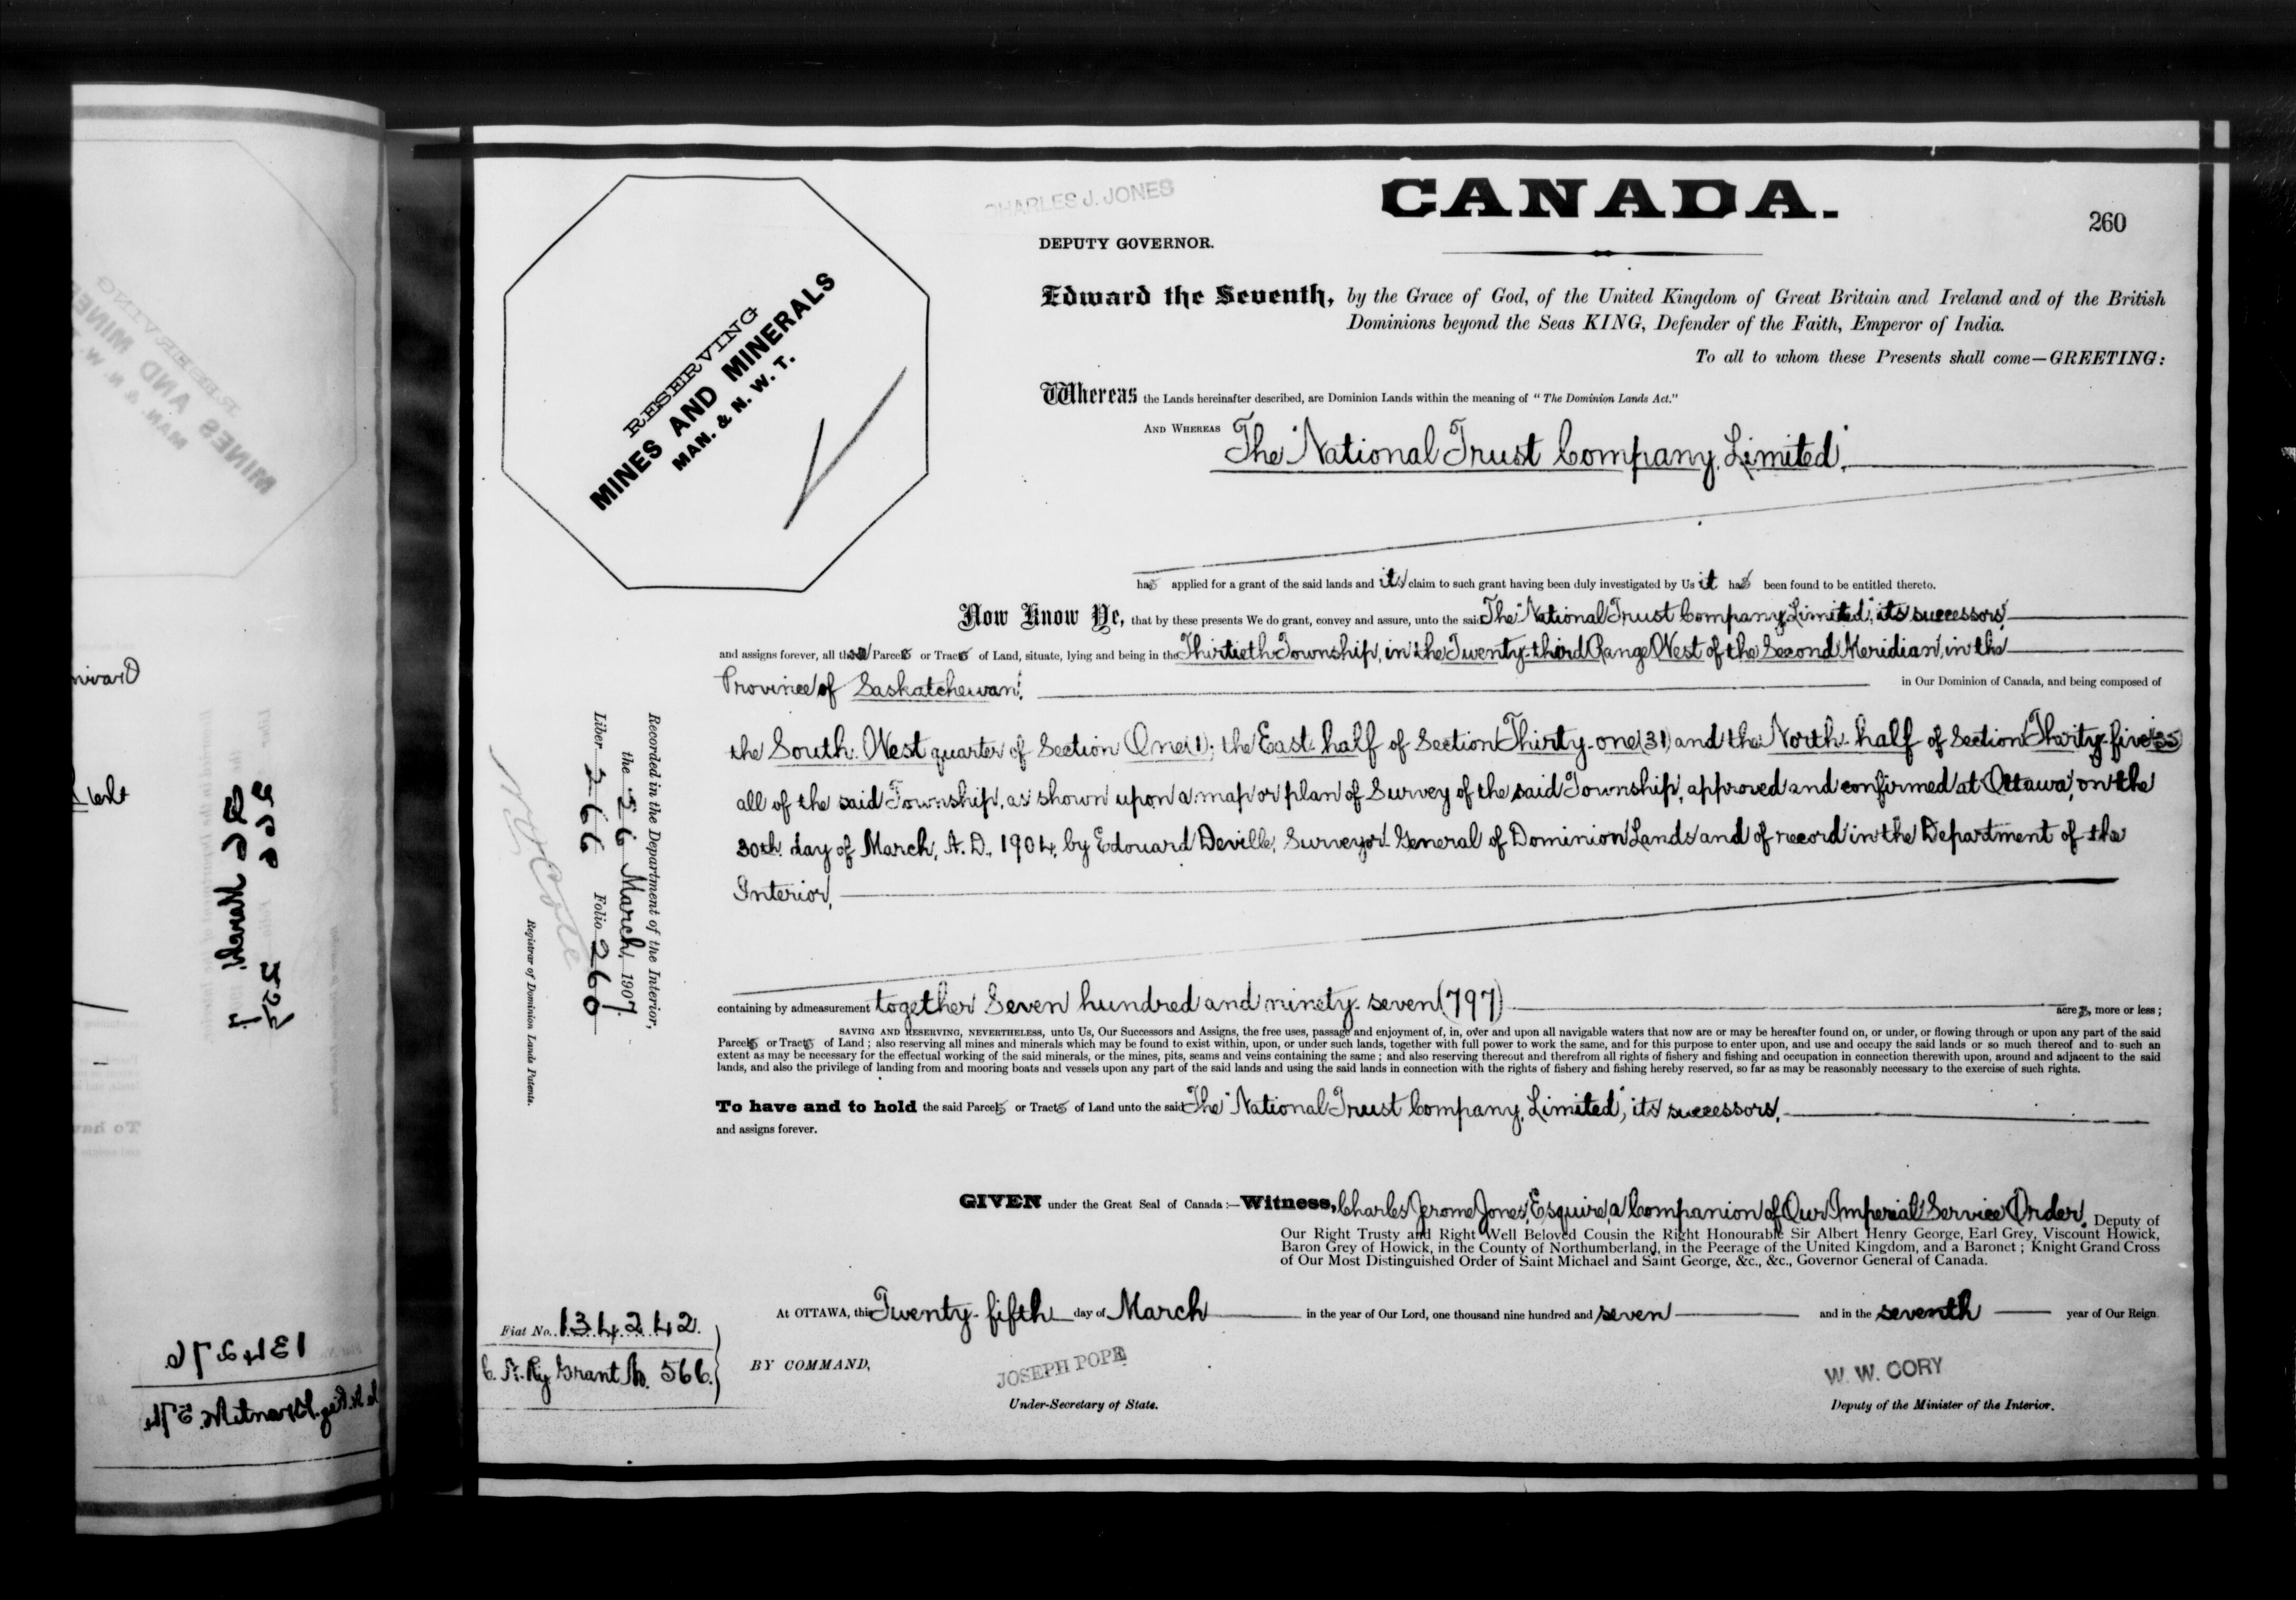 CHARLES J. JONES
CANADA.
260
DEPUTY GOVERNOR.
RESERVING
MINES AND MINERALS
MAN. & N. W. T.
Edward the Seventh, by the Grace of God, of the United Kingdom of Great Britain and Ireland and of the British
Dominions beyond the Seas KING, Defender of the Faith, Emperor of India.
To all to whom these Presents shall come—GREETING:
Whereas the Lands hereinafter described, are Dominion Lands within the meaning of "The Dominion Lands Act."
AND WHEREAS The "National Trust Company, Limited,"
has applied for a grant of the said lands and its claim to such grant having been duly investigated by Us it has been found to be entitled thereto.
Now Know Ye, that by these presents We do grant, convey and assure, unto the said The "National Trust Company, Limited," its successors
and assigns forever, all those Parcels or Tracts of Land, situate, lying and being in the Thirtieth Township, in the Twenty-third Range West of the Second Meridian, in the
Province of Saskatchewan, in Our Dominion of Canada, and being composed of
the South West quarter of Section One (1); the East half of Section Thirty-one (31) and the North half of Section Thirty-five (35)
all of the said Township, as shown upon a map or plan of Survey of the said Township, approved and confirmed at Ottawa, on the
30th day of March, A.D. 1904, by Edouard Deville, Surveyor General of Dominion Lands and of record in the Department of the
Interior,
Recorded in the Department of the Interior,
the 26 March, 1907.
Liber 266 Folio 260
Registrar of Dominion Lands Patents.
containing by admeasurement together Seven hundred and ninety-seven (797) acres, more or less;
SAVING AND RESERVING, NEVERTHELESS, unto Us, Our Successors and Assigns, the free uses, passage and enjoyment of, in, over and upon all navigable waters that now are or may be hereafter found on, or under, or flowing through or upon any part of the said
Parcels or Tracts of Land; also reserving all mines and minerals which may be found to exist within, upon, or under such lands, together with full power to work the same, and for this purpose to enter upon, and use and occupy the said lands or so much thereof and to such an
extent as may be necessary for the effectual working of the said minerals, or the mines, pits, seams and veins containing the same; and also reserving thereout and therefrom all rights of fishery and fishing and occupation in connection therewith upon, around and adjacent to the said
lands, and also the privilege of landing from and mooring boats and vessels upon any part of the said lands and using the said lands in connection with the rights of fishery and fishing hereby reserved, so far as may be reasonably necessary to the exercise of such rights.
To have and to hold the said Parcels or Tracts of Land unto the said The "National Trust Company, Limited," its successors,
and assigns forever.
GIVEN under the Great Seal of Canada:—Witness, Charles Jerome Jones, Esquire, a Companion of Our Imperial Service Order, Deputy of
Our Right Trusty and Right Well Beloved Cousin the Right Honourable Sir Albert Henry George, Earl Grey, Viscount Howick,
Baron Grey of Howick, in the County of Northumberland, in the Peerage of the United Kingdom, and a Baronet; Knight Grand Cross
of Our Most Distinguished Order of Saint Michael and Saint George, &c., &c., Governor General of Canada.
At OTTAWA, this Twenty-fifth day of March in the year of Our Lord, one thousand nine hundred and seven and in the seventh year of Our Reign.
Fiat No. 134242.
C. N. Ry Grant No. 566.
BY COMMAND,
JOSEPH POPE
Under-Secretary of State.
W. W. CORY
Deputy of the Minister of the Interior.